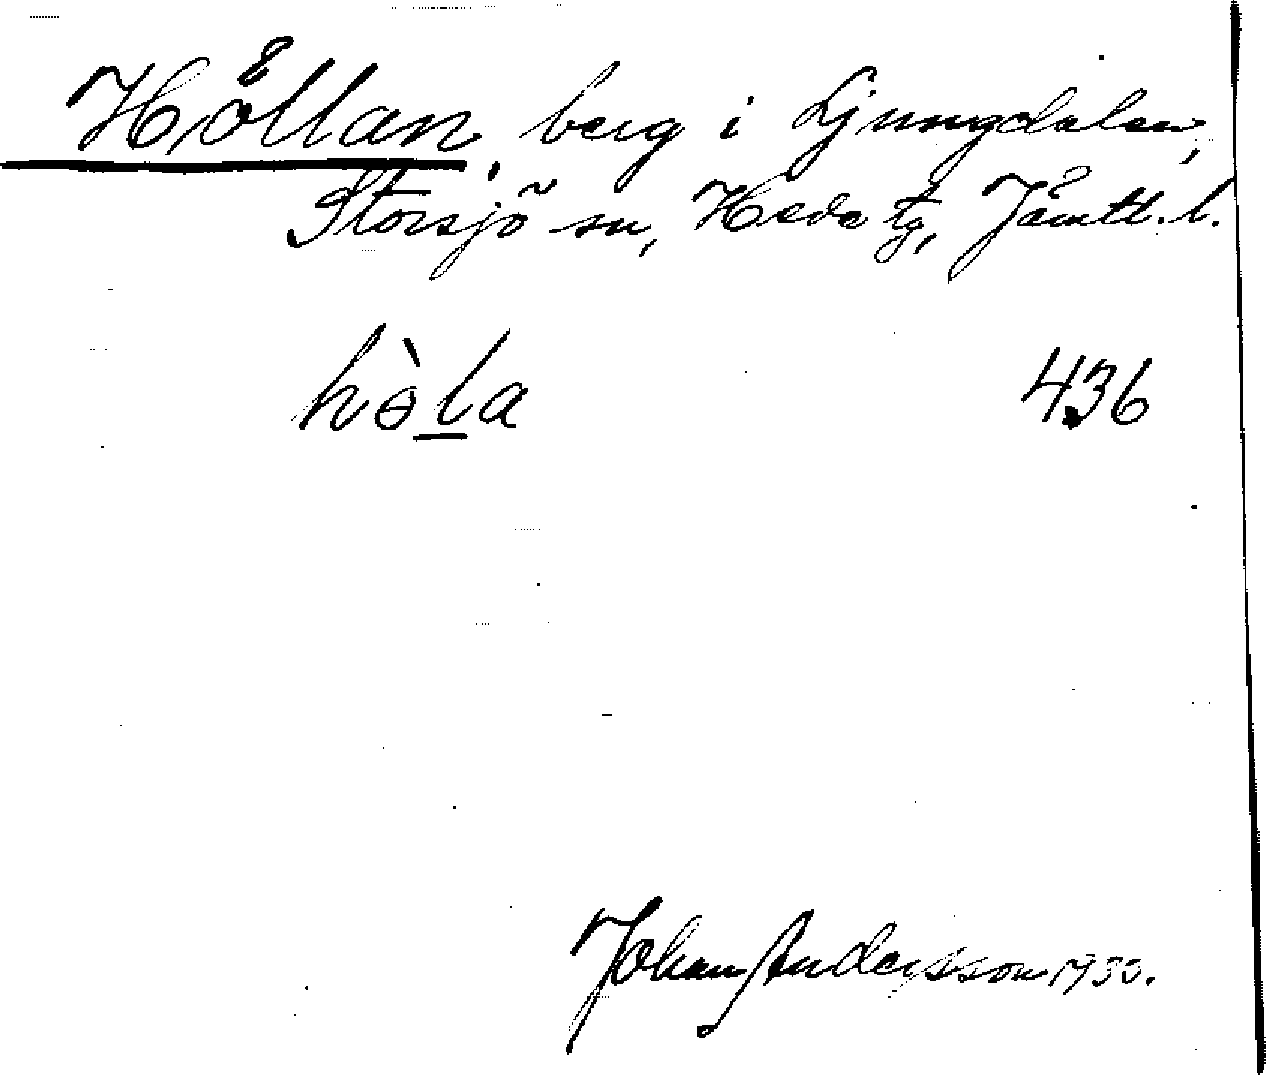 Hållan, berg i Ljungdalen,
Storsjö sn, Hede tg, Jämtl. l.
hòla 436
Johan Andersson 1930.